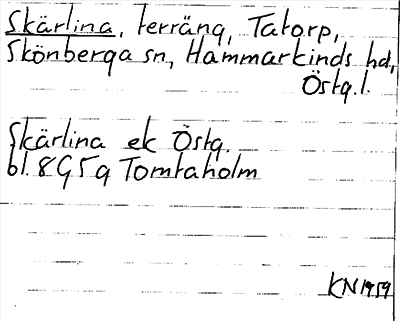 Skärlina, terräng, Tatorp,
Skönberga sn, Hammarkinds hd,
Östg.l.
Skärlina ek Östg.
bl. 8G5g Tomtaholm
KN 1959